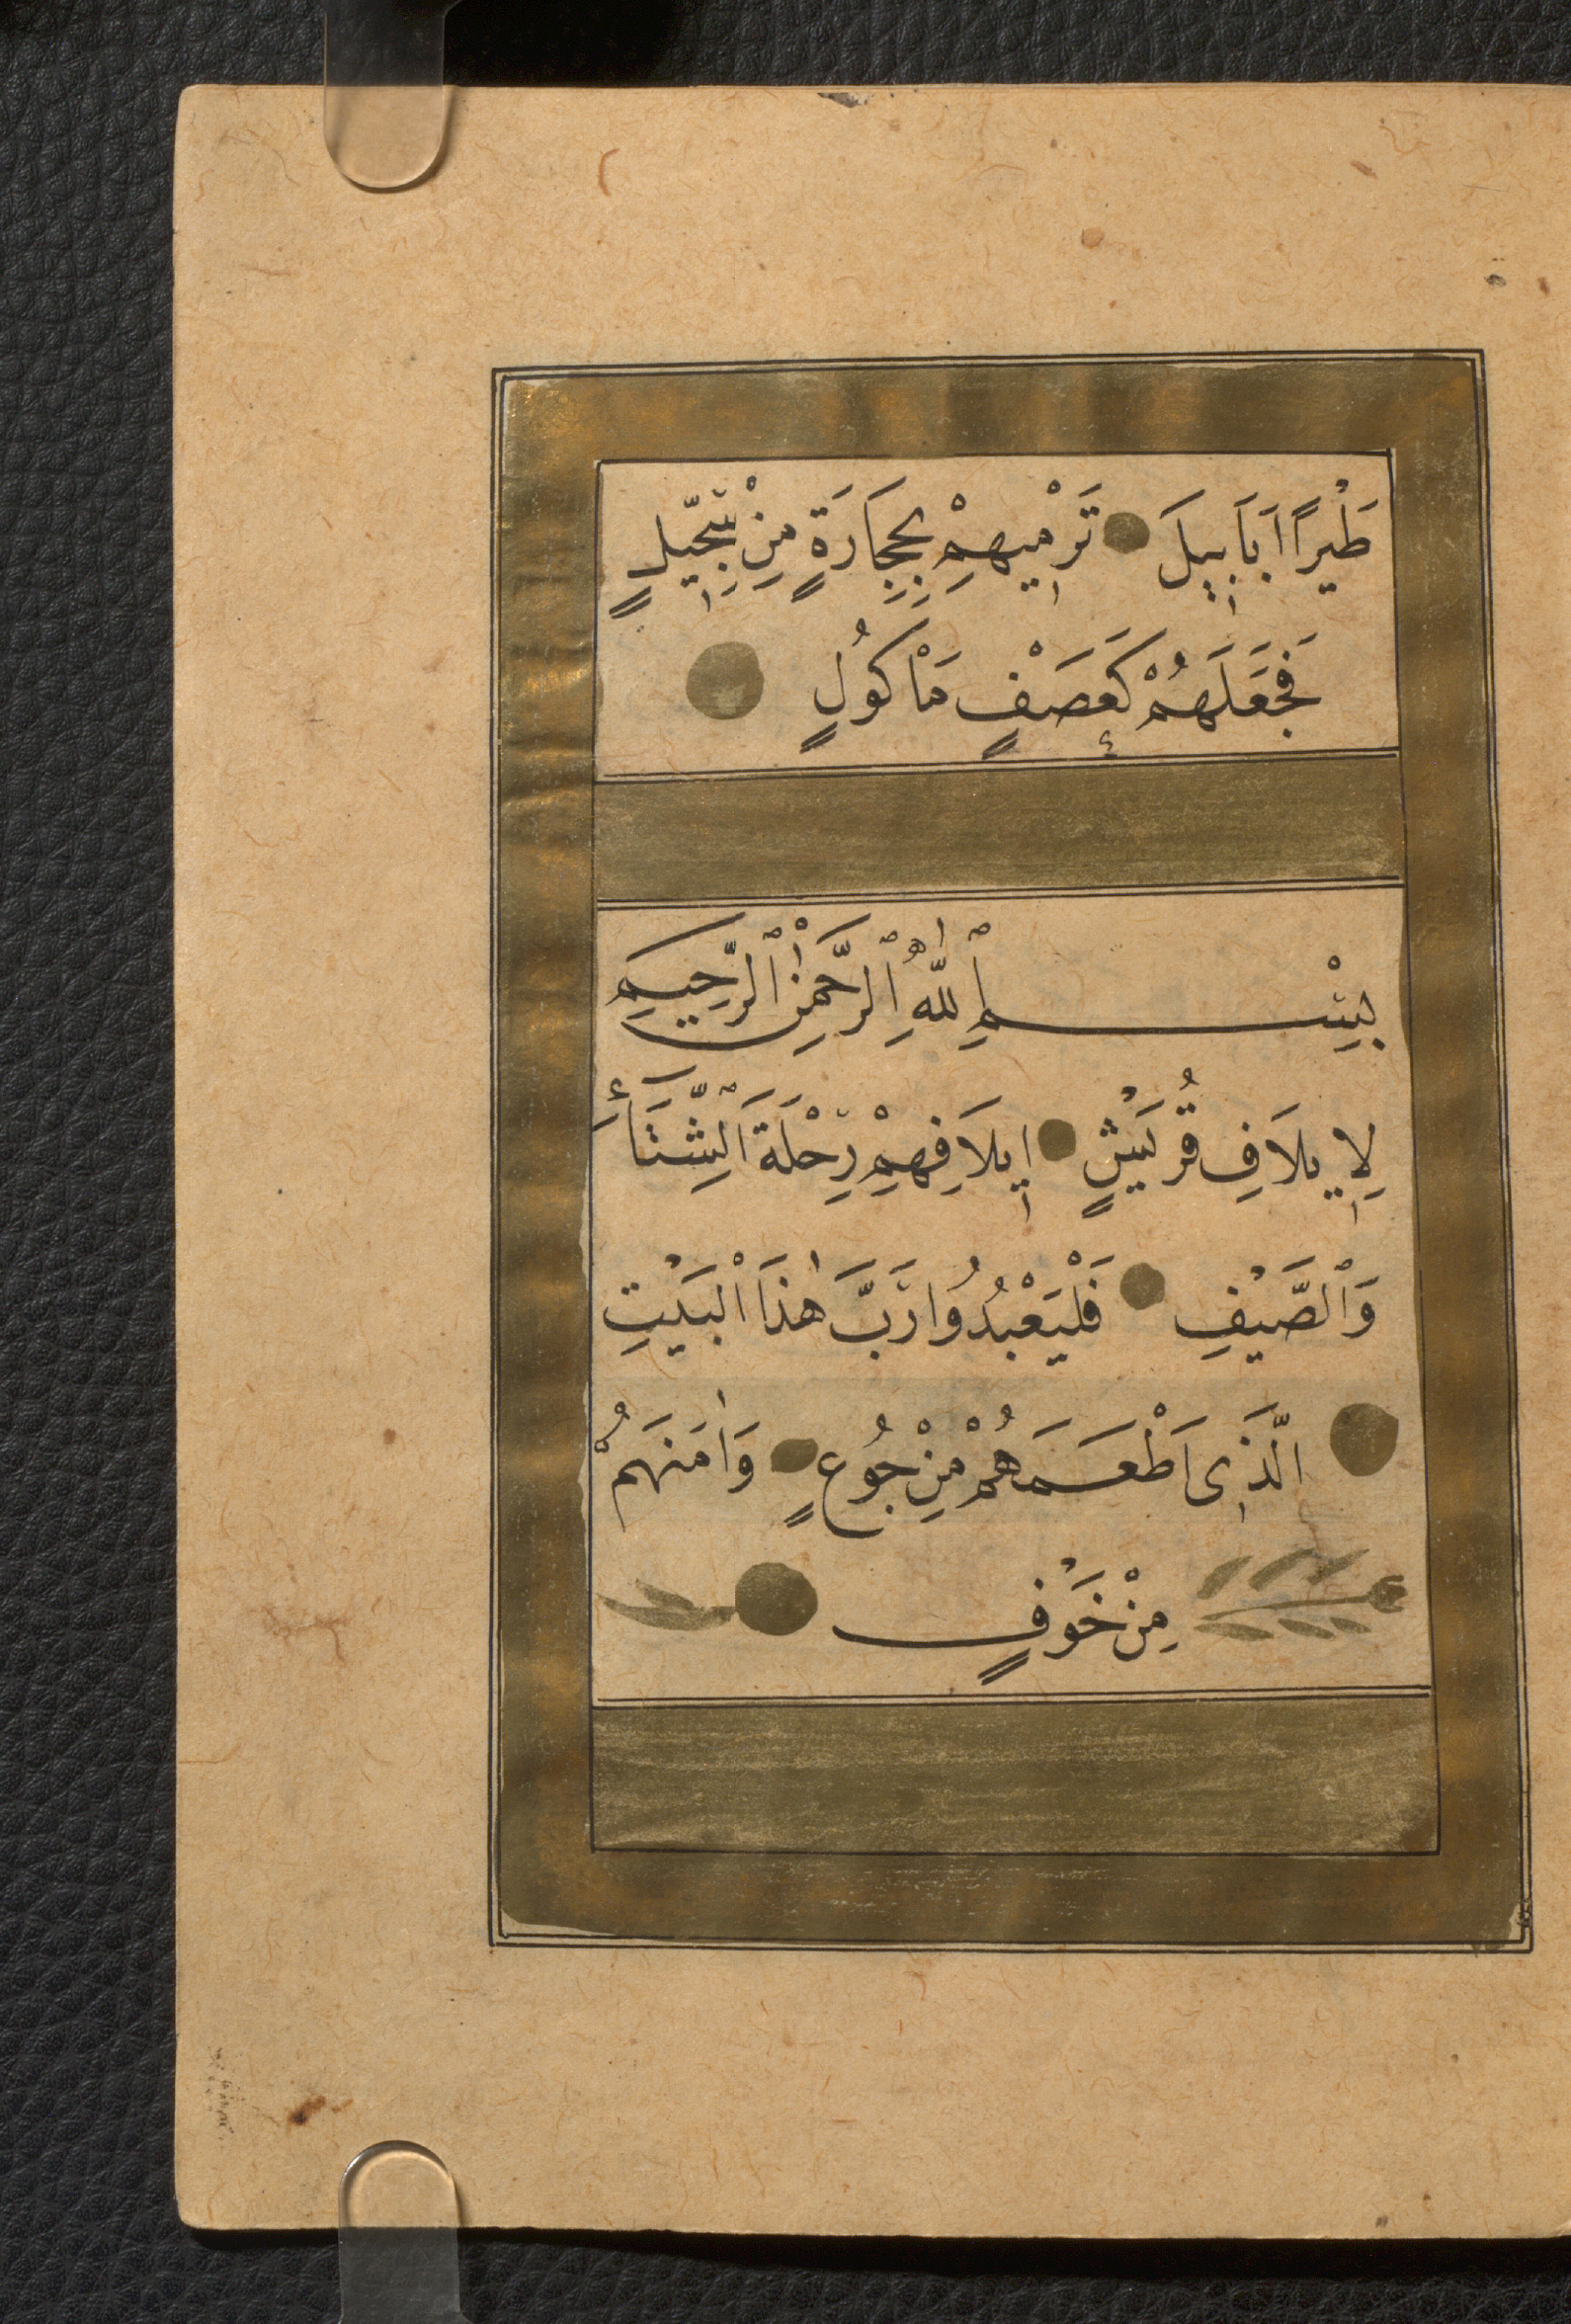 طَيْرًا اَبَابِيلَ تَرْمِيهِمْ بِحِجَارَةٍ مِنْ سِجِّيلٍ
فَجَعَلَهُمْ كَعَصْفٍ مَاْكُولٍ
بِسْمِ ٱللّٰهِ ٱلرَّحْمٰنِ ٱلرَّحِيمِ
لِاِيلَافِ قُرَيْشٍ اِيلَافِهِمْ رِحْلَةَ ٱلشِّتَاءِ
وَٱلصَّيْفِ فَلْيَعْبُدُوا رَبَّ هٰذَا ٱلْبَيْتِ
الَّذِى اَطْعَمَهُمْ مِنْ جُوعٍ وَاٰمَنَهُمْ
مِنْ خَوْفٍ